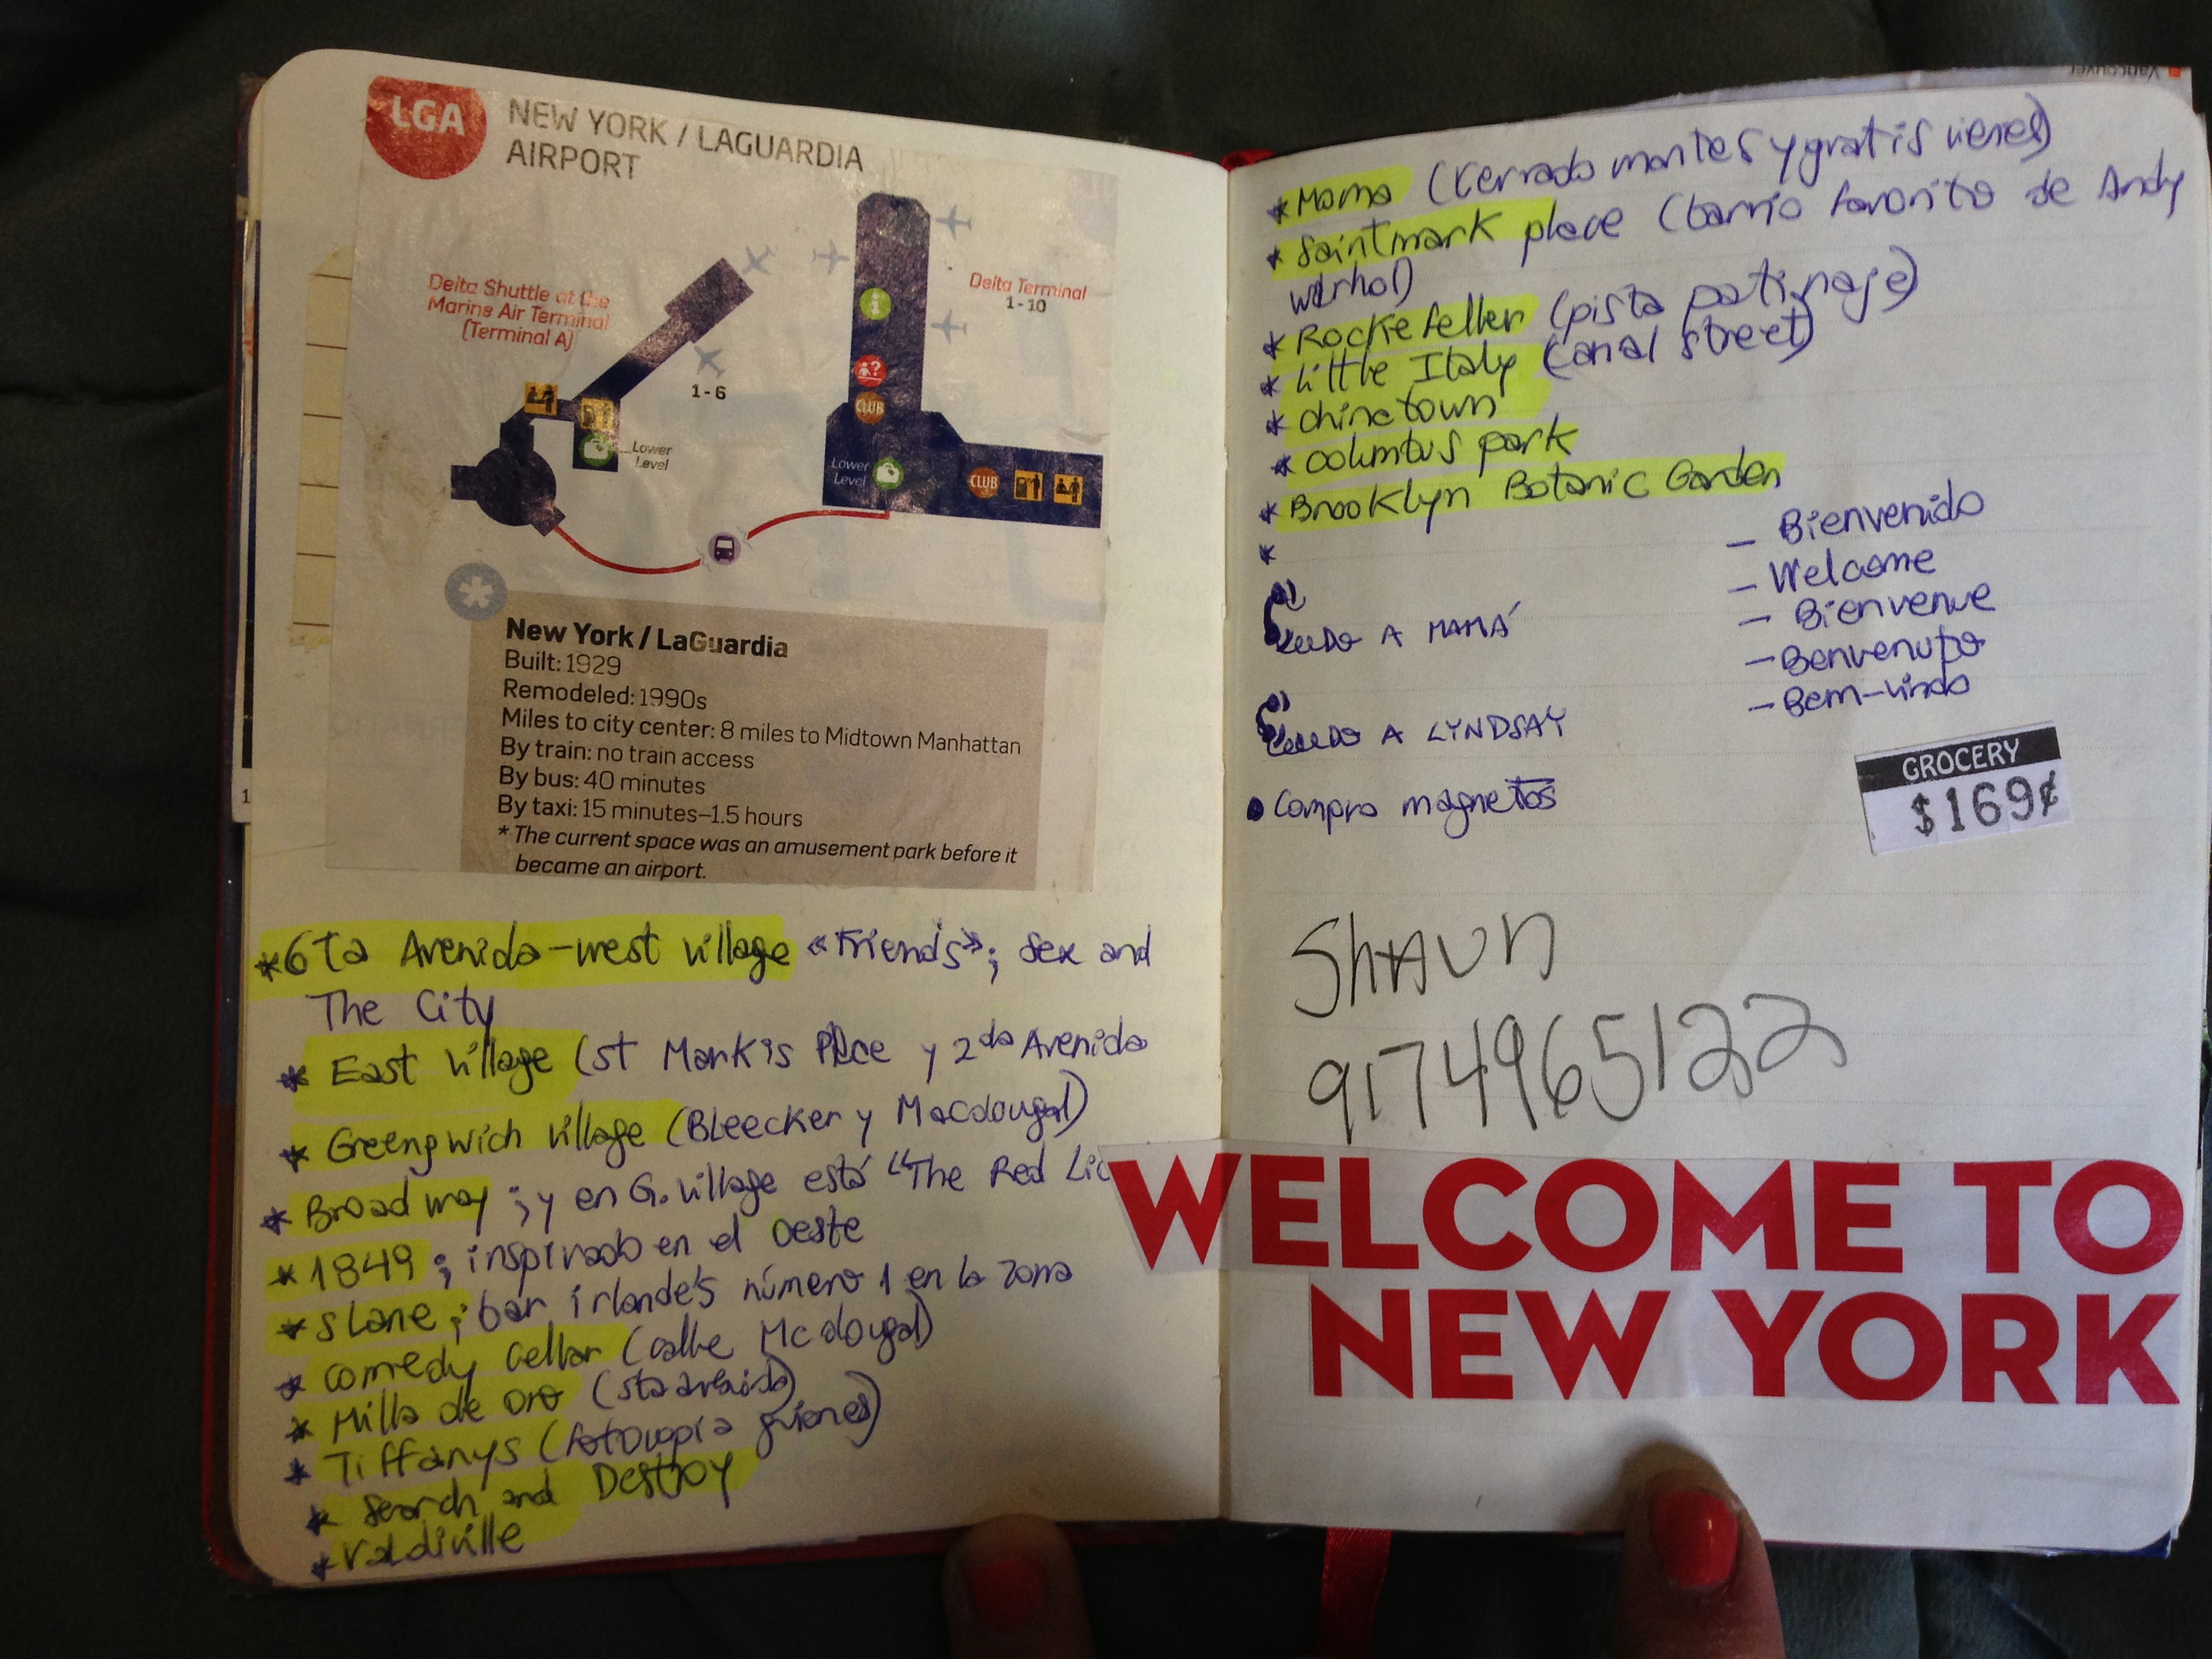 LGA
NEW YORK / LAGUARDIA
AIRPORT
Delta Shuttle at the
Marine Air Terminal
(Terminal A)
1-6
Lower
Level
Delta Terminal
1-10
CLUB
Lower
Level
CLUB
New York / LaGuardia
Built: 1929
Remodeled: 1990s
Miles to city center: 8 miles to Midtown Manhattan
By train: no train access
By bus: 40 minutes
By taxi: 15 minutes–1.5 hours
* The current space was an amusement park before it
became an airport.
1
*6Ta Avenida-west village «Friends»; Sex and
The City
* East Village (St Mark's Place y 2da Avenida
* Greengwich village (Bleecker y Macdougal)
* Broadway ; y en G. Village está "The Red Li
* 1849 ; inspirado en el oeste
* Slane ; bar irlandés número 1 en la zona
* comedy cellar (calle Mcdougal)
* Milla de oro (5ta avenida)
* Tiffanys (fotocopia guiones)
* Search and Destroy
*
Vancouver
* Moma (cerrado martes y gratis viernes)
* Saintmark place (barrio favorito de Andy
Warhol)
* Rockefeller (pista patinaje)
* Little Italy (canal street)
* chinatown
* columbus park
* Brooklyn Botanic Garden
*
- Bienvenido
- Welcome
- Bienvenue
- Benvenuto
- Bem-vindo
A MAMÁ
A LYNDSAY
• compro magnetos
GROCERY
$169¢
Shaun
9174965122
WELCOME TO
NEW YORK